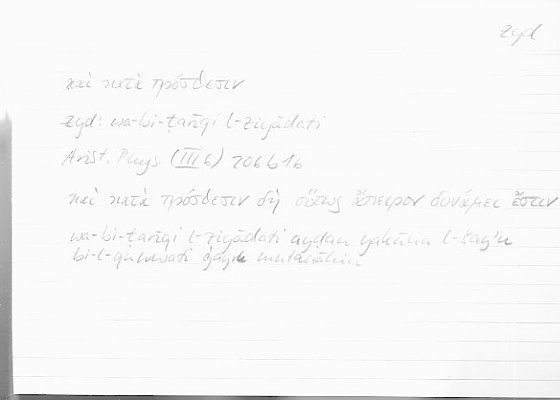 zyd
καὶ κατὰ πρόσθεσιν
zyd: wa-bi-ṭarīqi l-ziyādati
Arist. Phys (III 6) 206 b 16
καὶ κατὰ πρόσθεσιν δὴ οὕτως ἄπειρον δυνάμει ἔστιν
wa-bi-ṭarīqi l-ziyādati ayḍan yakūnu l-šayʾu
bi-l-quwwati ġayra mutanāhin